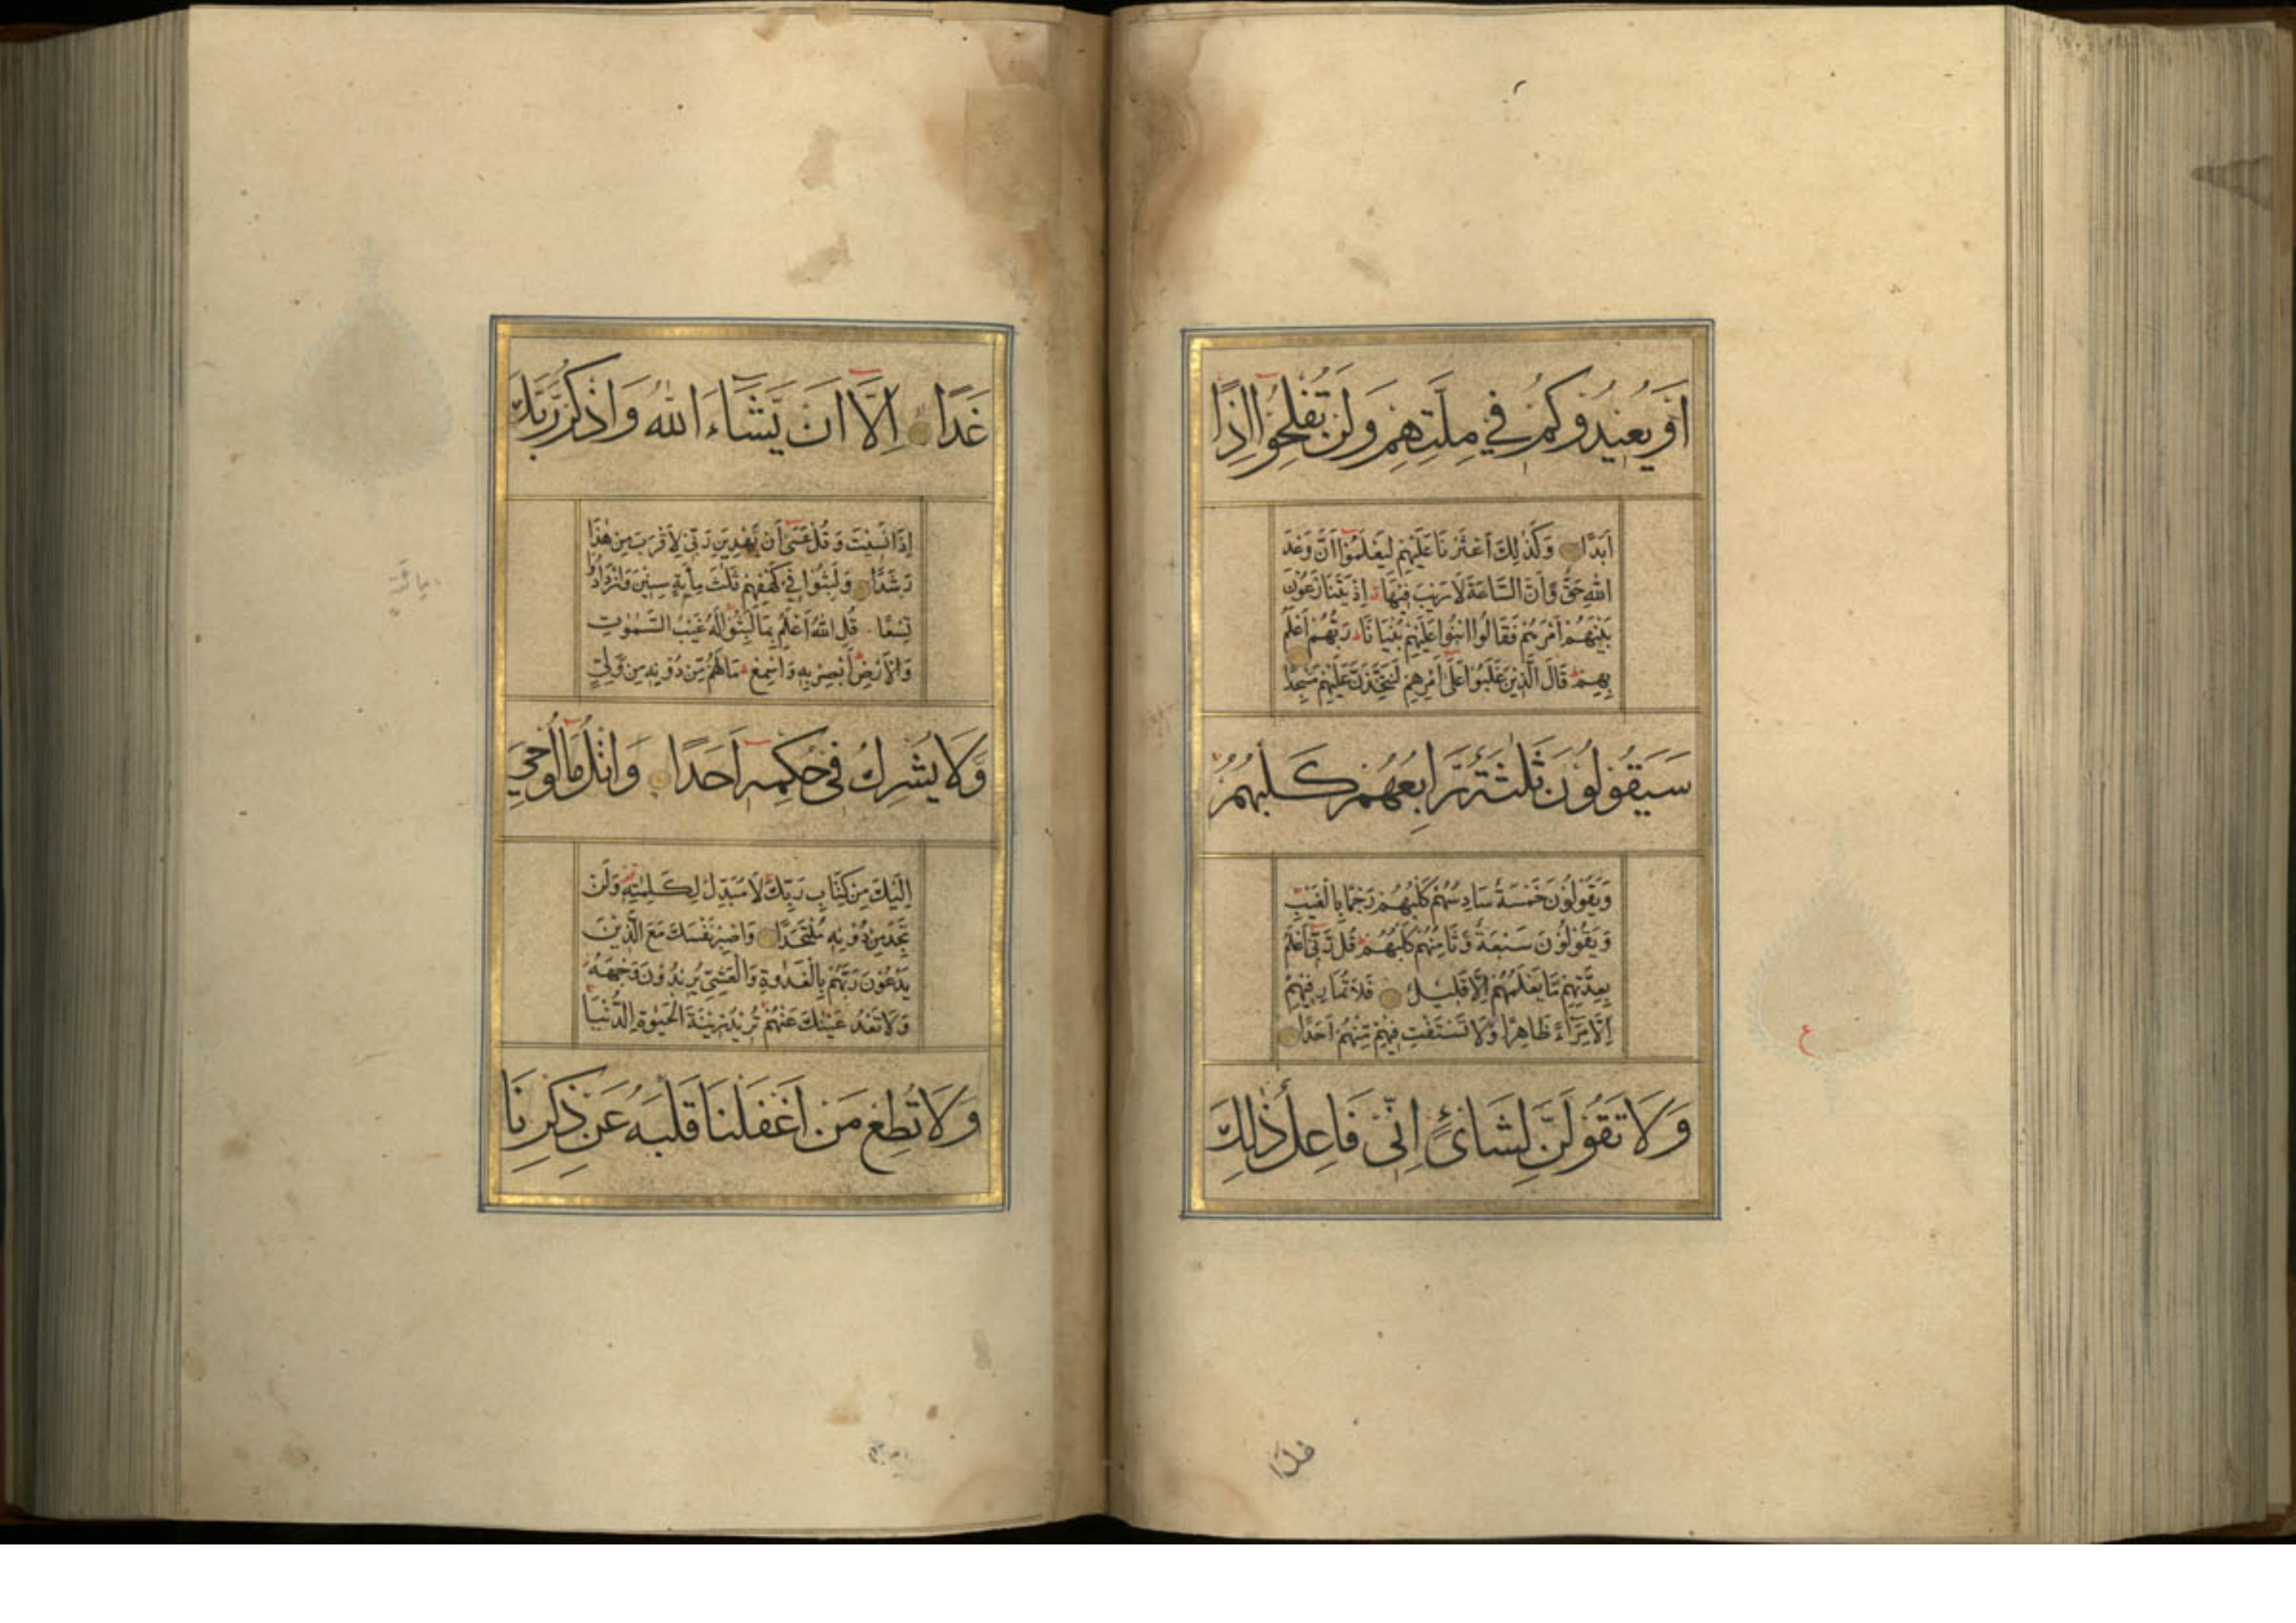 اَوْ يُعِيْدُوْكُمْ فِيْ مِلَّتِهِمْ وَلَنْ تُفْلِحُوْا اِذًا
اَبَدًا وَكَذٰلِكَ اَعْثَرْنَا عَلَيْهِمْ لِيَعْلَمُوْا اَنَّ وَعْدَ
اللهِ حَقٌّ وَّاَنَّ السَّاعَةَ لَا رَيْبَ فِيْهَا اِذْ يَتَنَازَعُوْنَ
بَيْنَهُمْ اَمْرَهُمْ فَقَالُوا ابْنُوْا عَلَيْهِمْ بُنْيَانًا رَبُّهُمْ اَعْلَمُ
بِهِمْ قَالَ الَّذِيْنَ غَلَبُوْا عَلٰى اَمْرِهِمْ لَنَتَّخِذَنَّ عَلَيْهِمْ مَسْجِدًا
سَيَقُوْلُوْنَ ثَلٰثَةٌ رَّابِعُهُمْ كَلْبُهُمْ
وَيَقُوْلُوْنَ خَمْسَةٌ سَادِسُهُمْ كَلْبُهُمْ رَجْمًا بِالْغَيْبِ
وَيَقُوْلُوْنَ سَبْعَةٌ وَّثَامِنُهُمْ كَلْبُهُمْ قُلْ رَّبِّيْ اَعْلَمُ
بِعِدَّتِهِمْ مَّا يَعْلَمُهُمْ اِلَّا قَلِيْلٌ فَلَا تُمَارِ فِيْهِمْ
اِلَّا مِرَآءً ظَاهِرًا وَّلَا تَسْتَفْتِ فِيْهِمْ مِّنْهُمْ اَحَدًا
وَلَا تَقُوْلَنَّ لِشَائْءٍ اِنِّيْ فَاعِلٌ ذٰلِكَ
غَدًا اِلَّا اَنْ يَّشَآءَ اللهُ وَاذْكُرْ رَّبَّكَ
اِذَا نَسِيْتَ وَقُلْ عَسٰى اَنْ يَّهْدِيَنِ رَبِّيْ لِاَقْرَبَ مِنْ هٰذَا
رَشَدًا وَلَبِثُوْا فِيْ كَهْفِهِمْ ثَلٰثَ مِأئَةٍ سِنِيْنَ وَازْدَادُوْا
تِسْعًا قُلِ اللهُ اَعْلَمُ بِمَا لَبِثُوْا لَهُ غَيْبُ السَّمٰوٰتِ
وَالْاَرْضِ اَبْصِرْ بِهِ وَاَسْمِعْ مَا لَهُمْ مِّنْ دُوْنِهِ مِنْ وَّلِيٍّ
وَّلَا يُشْرِكُ فِيْ حُكْمِهِ اَحَدًا وَاتْلُ مَا اُوْحِيَ
اِلَيْكَ مِنْ كِتَابِ رَبِّكَ لَا مُبَدِّلَ لِكَلِمٰتِهِ وَلَنْ
تَجِدَ مِنْ دُوْنِهِ مُلْتَحَدًا وَاصْبِرْ نَفْسَكَ مَعَ الَّذِيْنَ
يَدْعُوْنَ رَبَّهُمْ بِالْغَدٰوةِ وَالْعَشِيِّ يُرِيْدُوْنَ وَجْهَهُ
وَلَا تَعْدُ عَيْنٰكَ عَنْهُمْ تُرِيْدُ زِيْنَةَ الْحَيٰوةِ الدُّنْيَا
وَلَا تُطِعْ مَنْ اَغْفَلْنَا قَلْبَهُ عَنْ ذِكْرِنَا